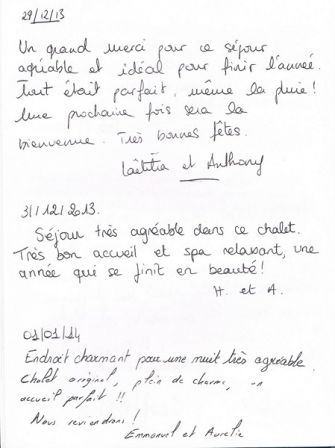 29/12/13
Un grand merci pour ce séjour
agréable et idéal pour finir l'année.
Tout était parfait, même la pluie!
Une prochaine fois sera la
bienvenue. Très bonnes fêtes.
Laëtitia et Anthony
31/12/2013.
Séjour très agréable dans ce chalet.
Très bon accueil et spa relaxant, une
année qui se finit en beauté!
H. et A.
01/01/14
Endroit charmant pour une nuit très agréable.
Chalet original, plein de charme, un
accueil parfait !!
Nous reviendrons!
Emmanuel et Aurélie